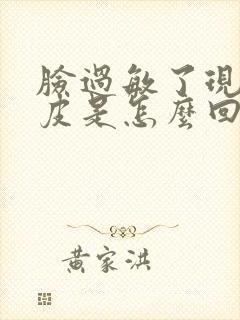 臉過敏了現
皮是怎麼回
黃家洪